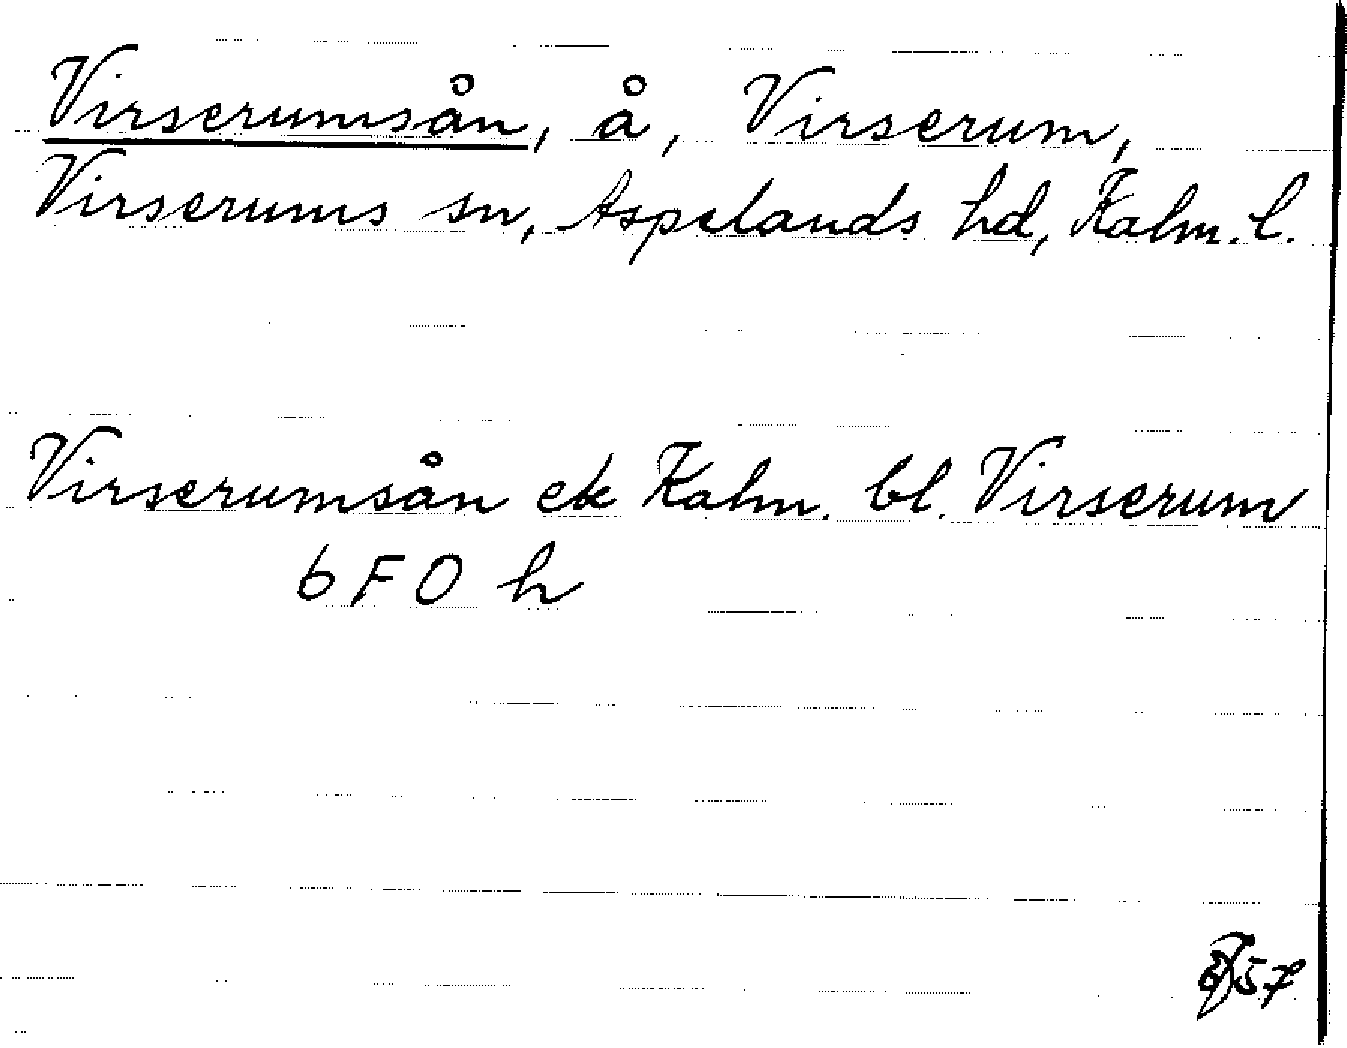 Virserumsån, å, Virserum,
Virserums sn, Aspelands hd, Kalm. l.
Virserumsån ek Kalm. bl. Virserum
6 F O h
57